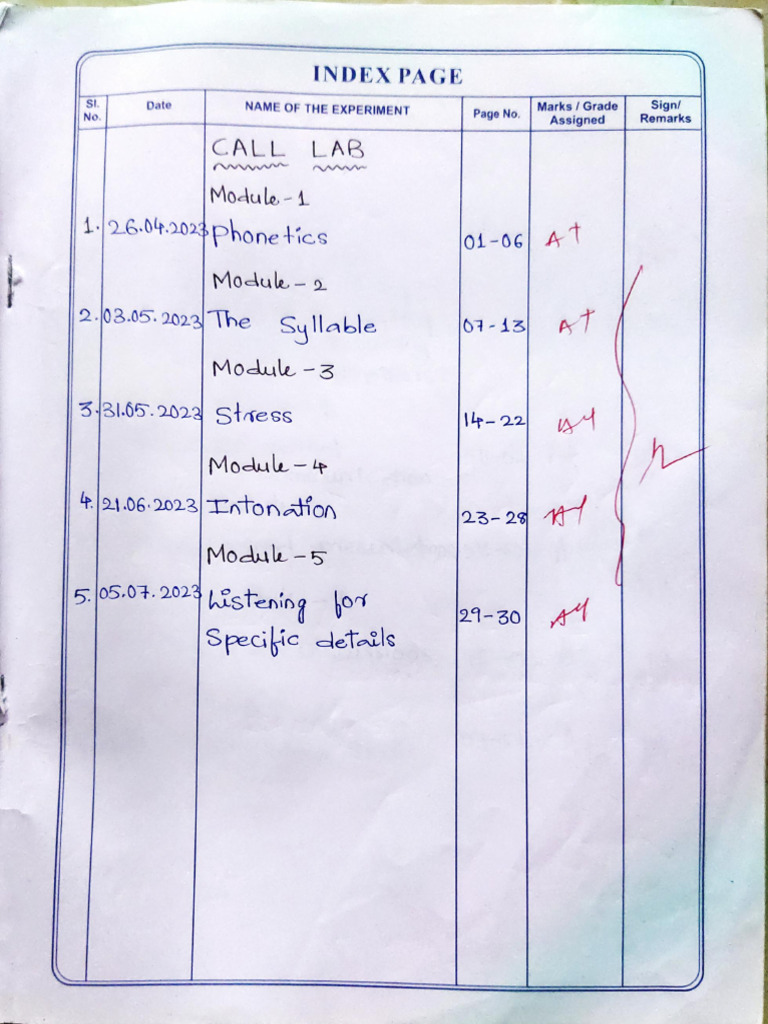 INDEX PAGE
Sl. No. Date NAME OF THE EXPERIMENT Page No. Marks / Grade Assigned Sign/ Remarks
CALL LAB
Module-1
1. 26.04.2023 Phonetics 01-06 A+
Module-2
2. 03.05.2023 The Syllable 07-13 A+
Module-3
3. 31.05.2023 Stress 14-22 A+
Module-4
4. 21.06.2023 Intonation 23-28 A+
Module-5
5. 05.07.2023 Listening for 29-30 A+
Specific details